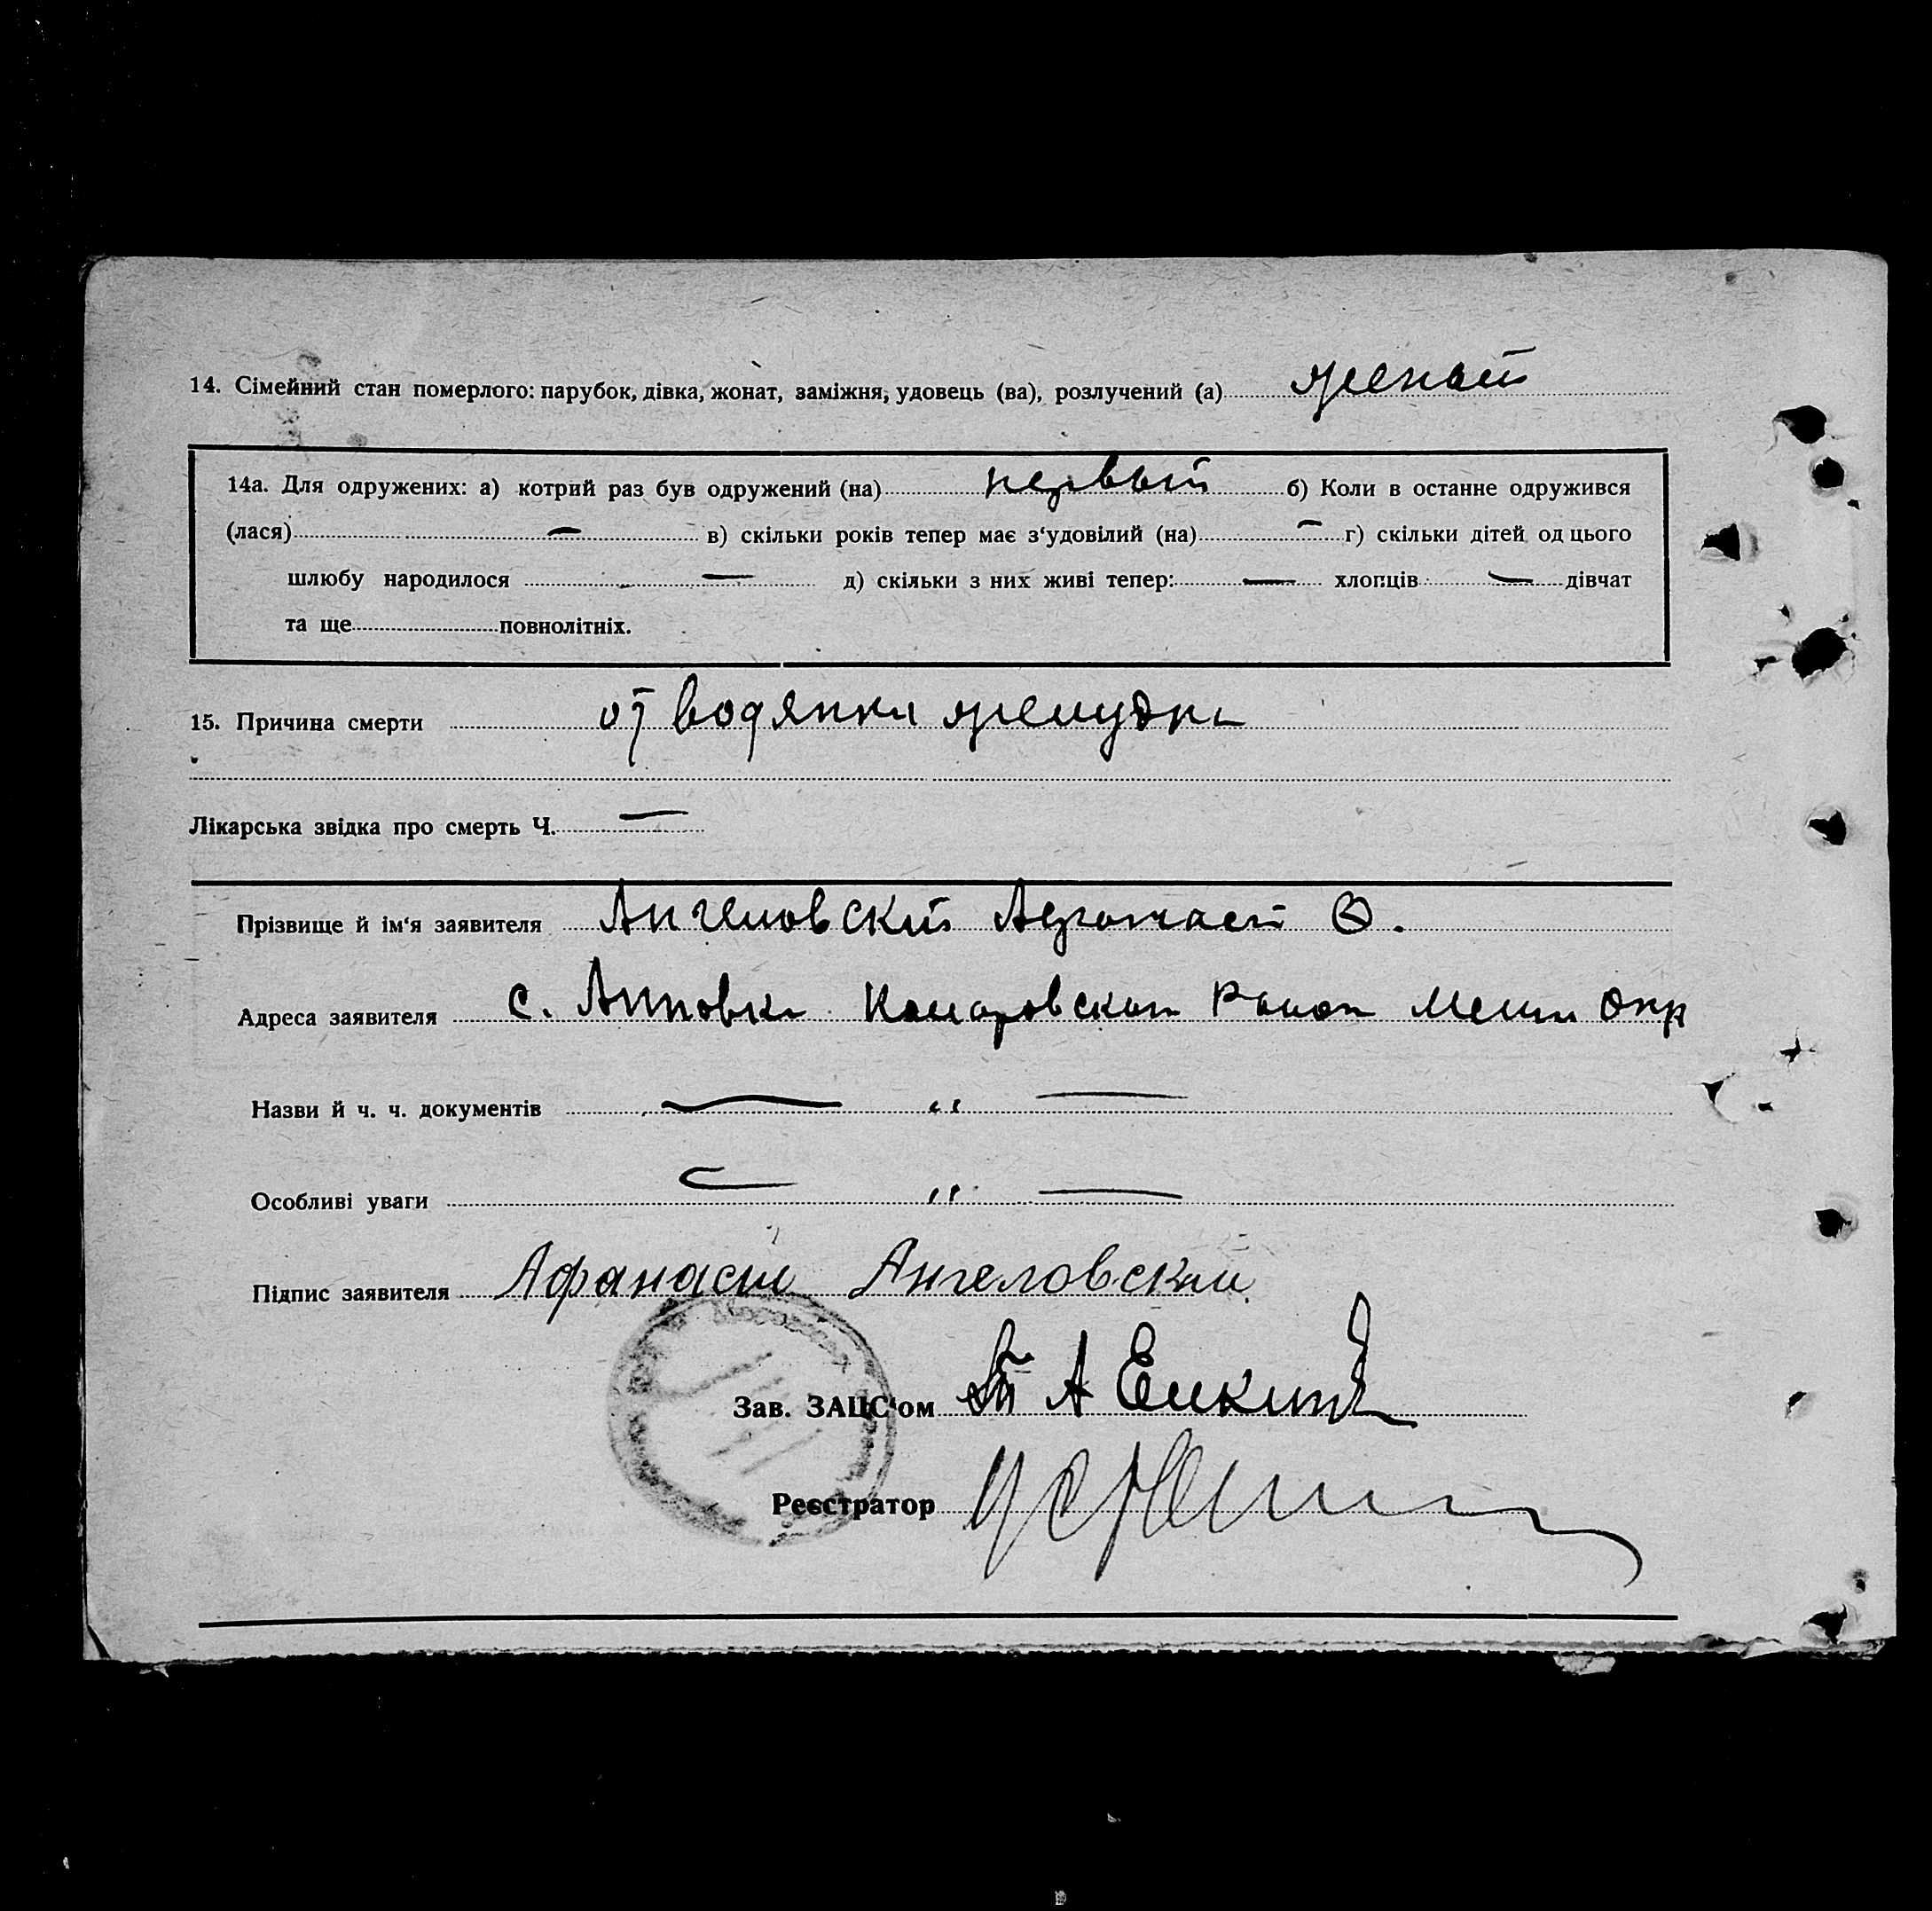 14. Сімейний стан померлого: парубок, дівка, жонат, заміжня, удовець (ва), розлучений (а) женат
14а. Для одружених: а) котрий раз був одружений (на) первый б) Коли в останне одружився
(лася) — в) скільки років тепер має з‘удовілий (на) — г) скільки дітей од цього
шлюбу народилося — д) скільки з них живі тепер: — хлопців — дівчат
та ще повнолітніх.
15. Причина смерти от водянки желудка
Лікарська звідка про смерть Ч. —
Прізвище й ім‘я заявителя Ангеловский Афанасий
Адреса заявителя с. Комаровского Район Окр
Назви й ч. ч. документів — „ —
Особливі уваги — „ —
Підпис заявителя Афанасий Ангеловский
Зав. ЗАЦС‘ом
Реєстратор